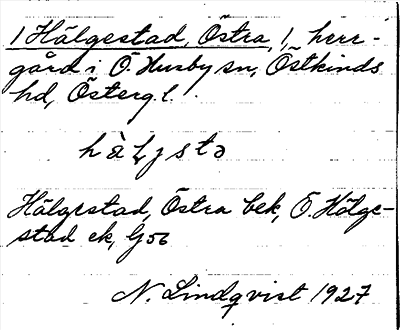 1 Hälgestad, Östra, 1, herr-
gård i Ö. Husby sn, Östkinds
hd, Östergl.
hälgestad, Östra bek, Ö. Hälge-
stad ek, G 56
N. Lindqvist 1927